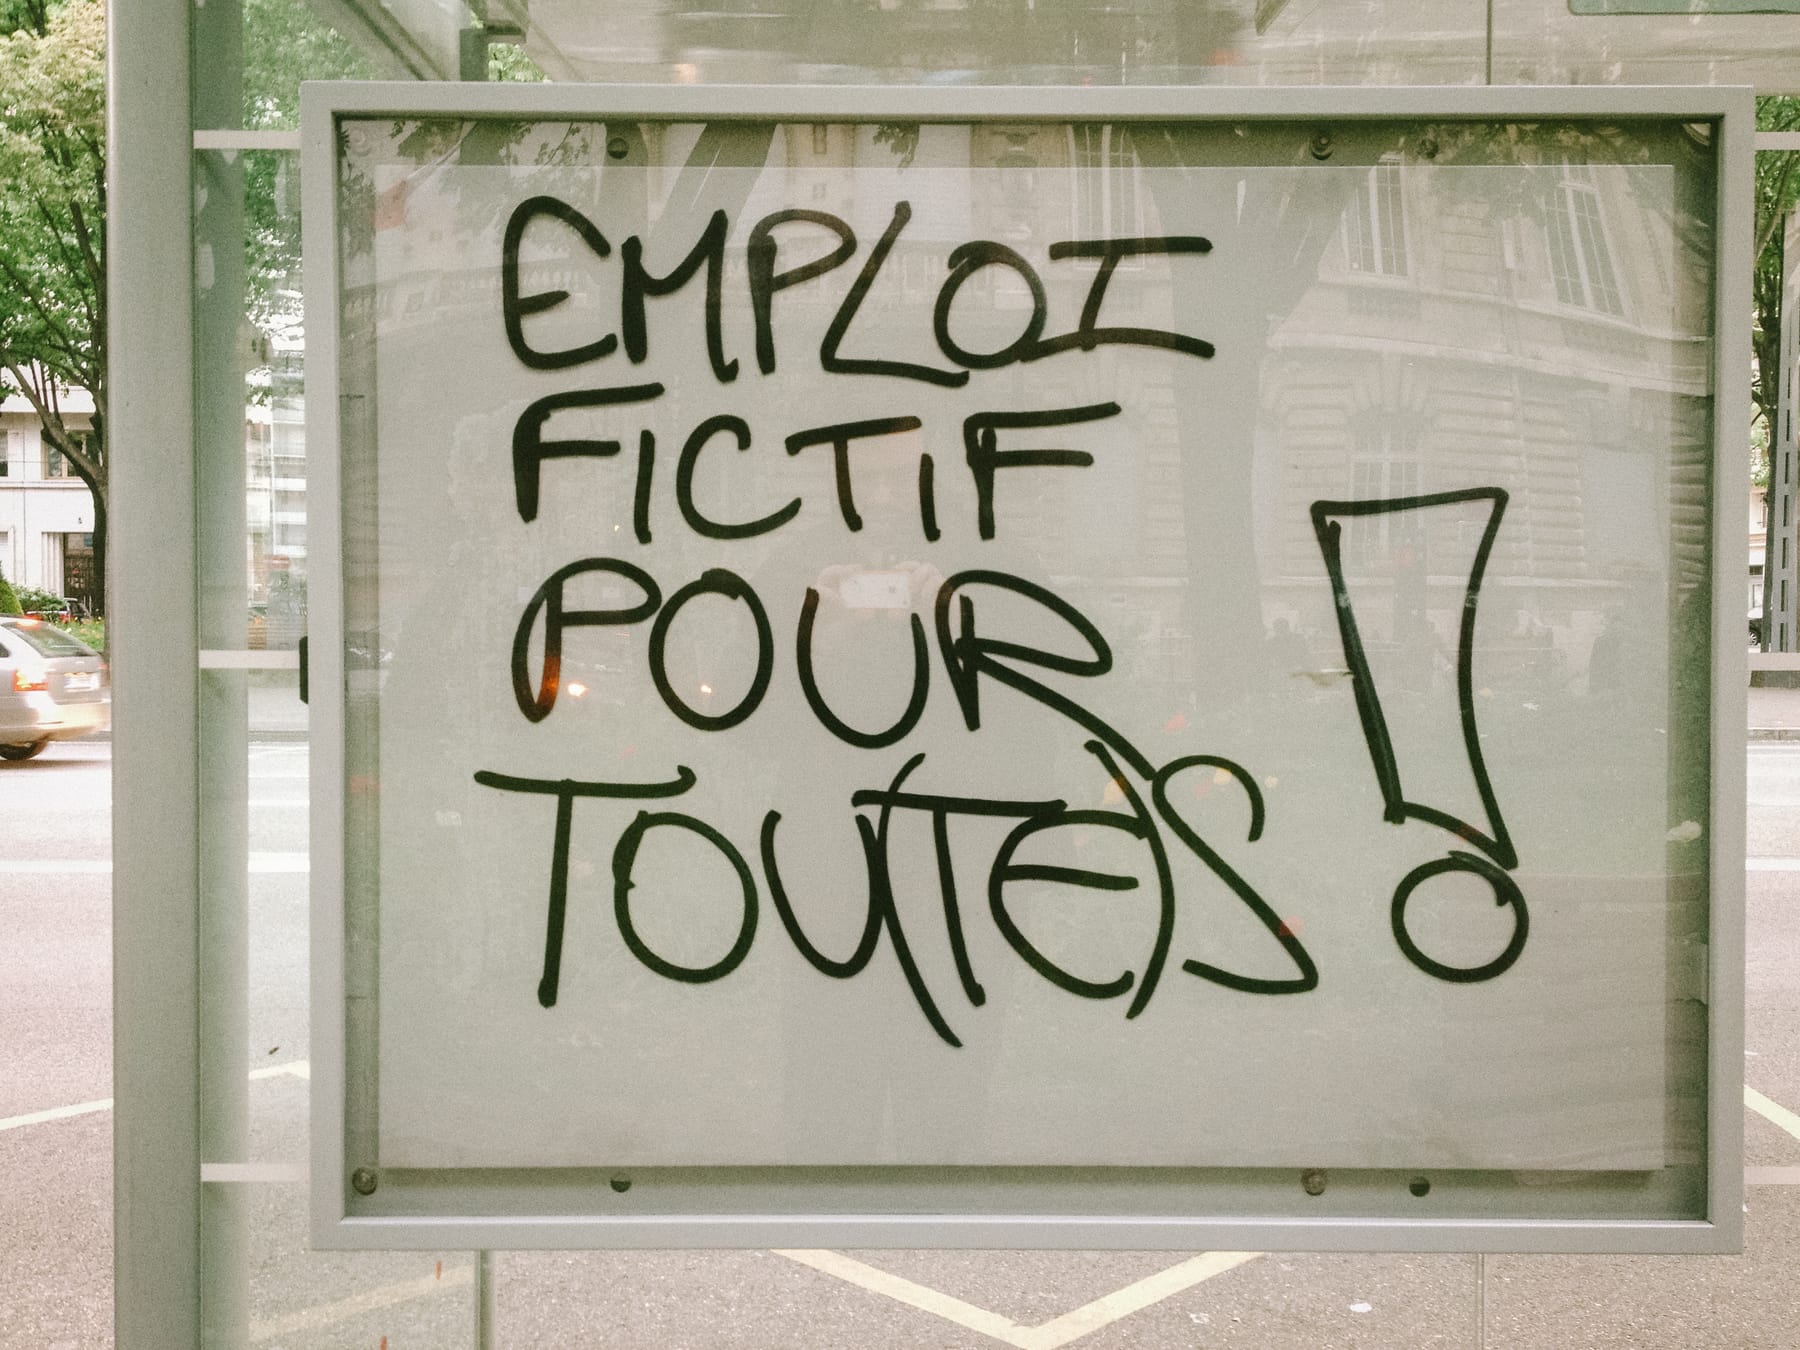 EMPLOI
FICTIF
POUR
TOU(TE)S !